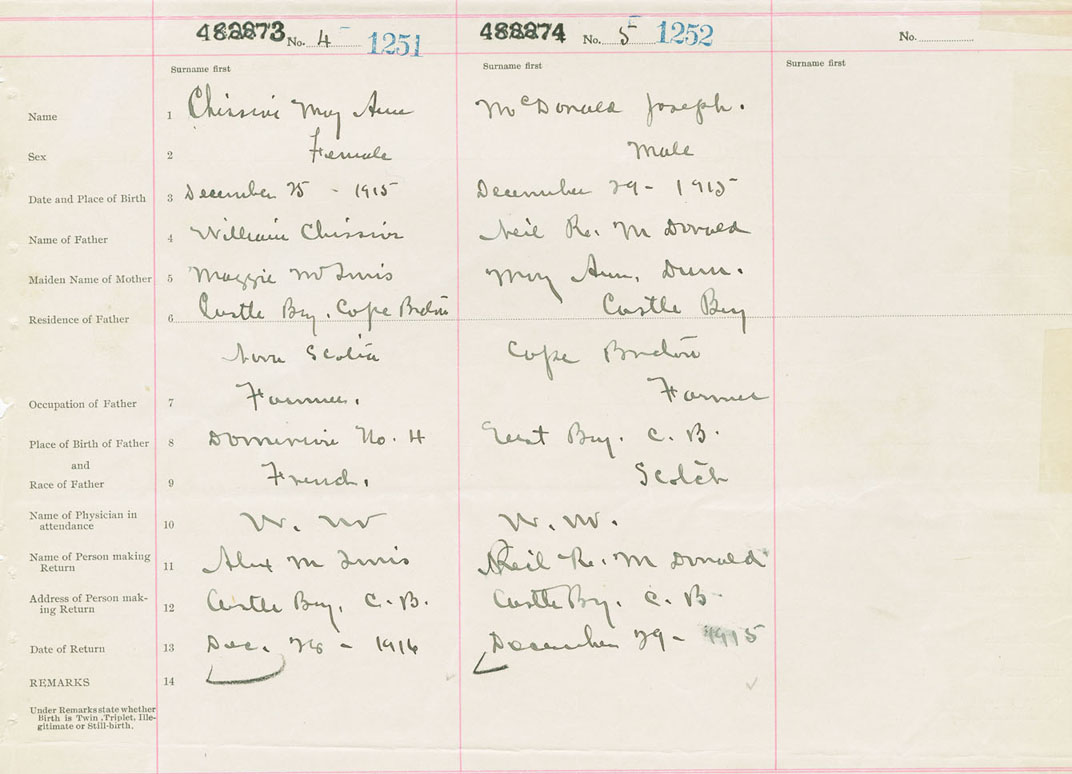 488873 No. 4 1251 488874 No. 5 1252 No.
Surname first Surname first Surname first
Name 1 May Ann McDonald Joseph.
Sex 2 Female Male
Date and Place of Birth 3 December 25 - 1915 December 29 - 1915
Name of Father 4 William Neil Mc Donald
Maiden Name of Mother 5 Maggie May Ann, Dunn.
Residence of Father 6 Castle Bay, Cape Breton Castle Bay
Nova Scotia Cape Breton
Occupation of Father 7 Farmer. Farmer
Place of Birth of Father 8 Dominion No. 4 East Bay. C. B.
and
Race of Father 9 French. Scotch
Name of Physician in
attendance 10
Name of Person making
Return 11 Alex Neil Mc Donald
Address of Person mak-
ing Return 12 Castle Bay, C. B. Castle Bay. C. B.
Date of Return 13 Dec. 1916 December 29 - 1915
REMARKS 14
Under Remarks state whether
Birth is Twin, Triplet, Ille-
gitimate or Still-birth.